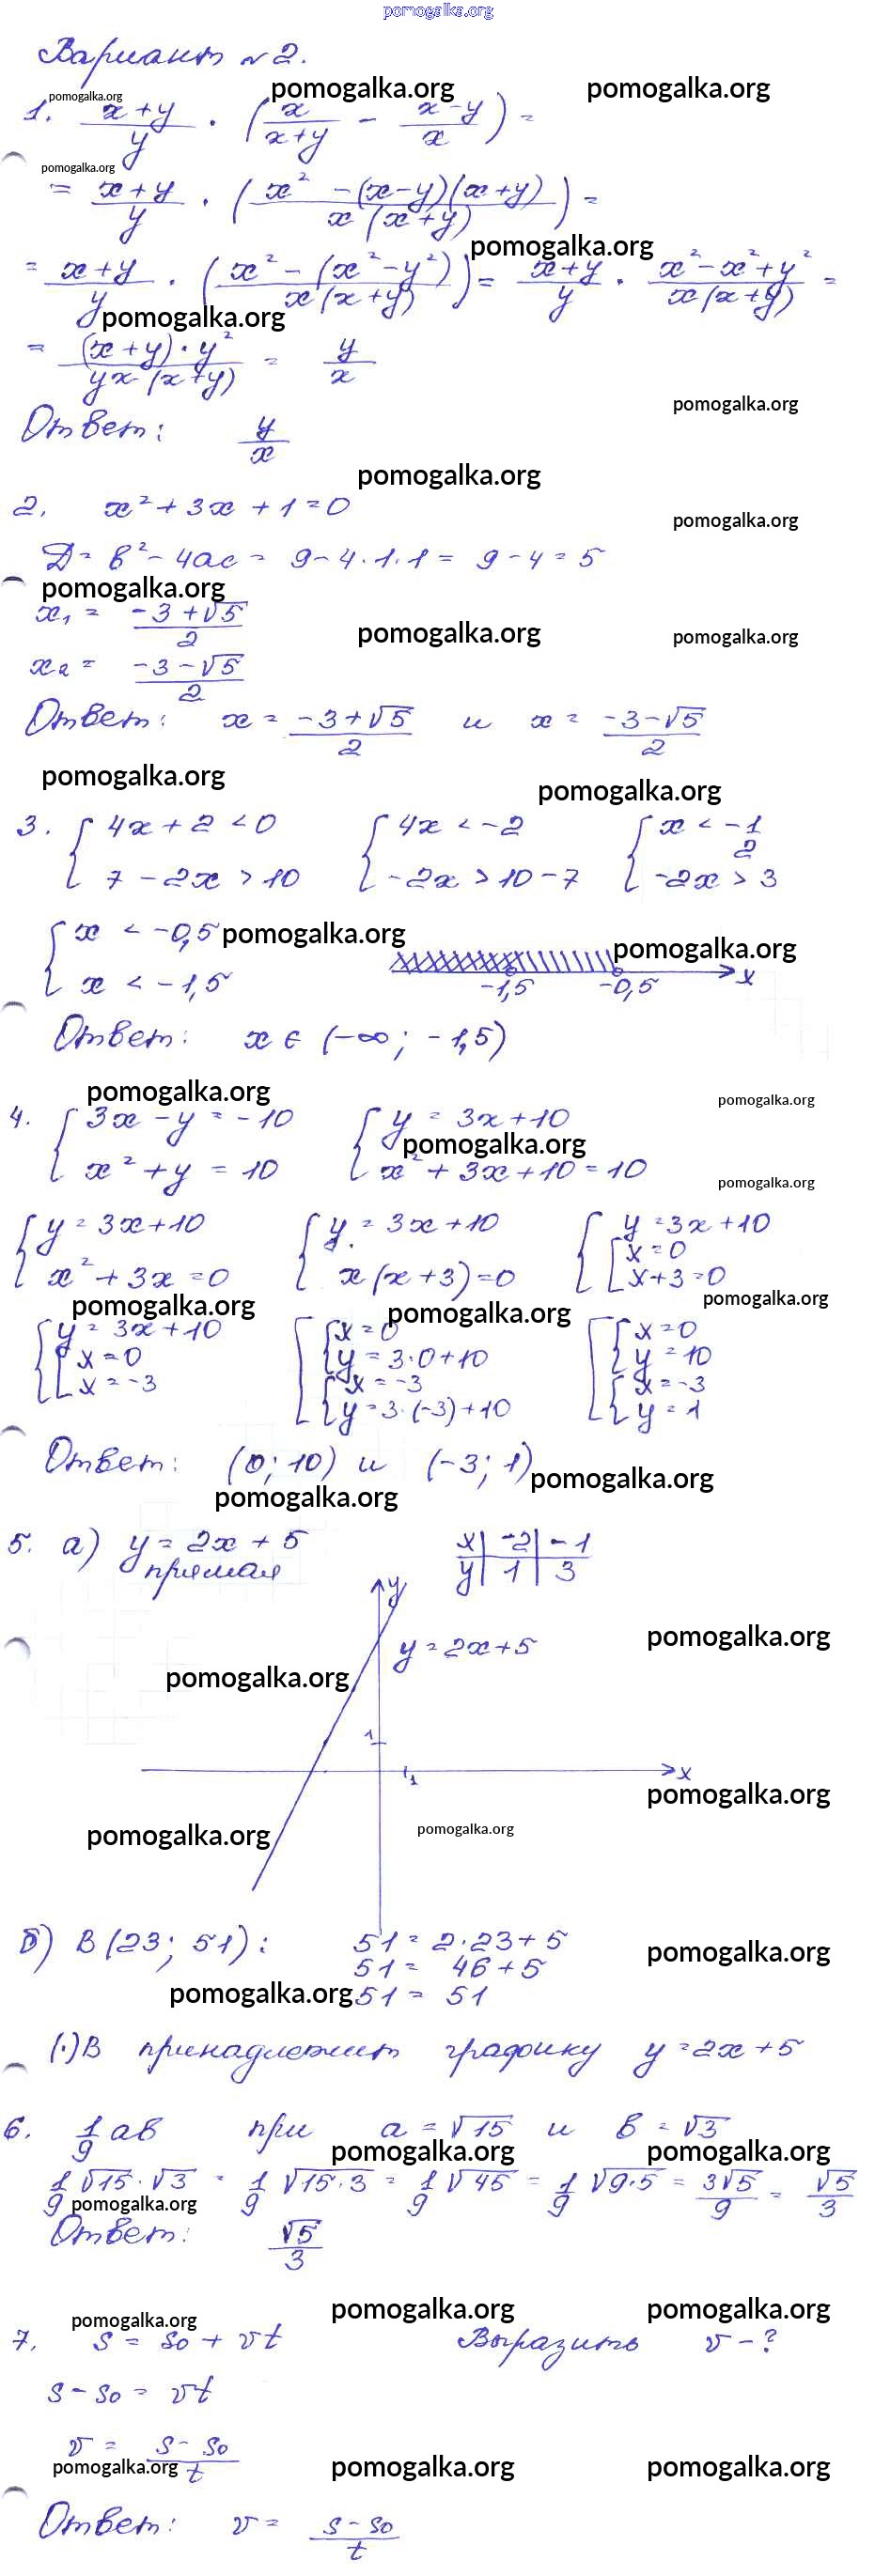 pomogalka.org
Вариант №2.
pomogalka.org pomogalka.org pomogalka.org
1. (x+y)/y · (x/(x+y) - (x-y)/x) =
pomogalka.org
= (x+y)/y · ((x² - (x-y)(x+y))/(x(x+y))) =
pomogalka.org
= (x+y)/y · ((x² - (x²-y²))/(x(x+y))) = (x+y)/y · (x²-x²+y²)/(x(x+y)) =
pomogalka.org
= ((x+y)·y²)/(yx·(x+y)) = y/x
pomogalka.org
Ответ: y/x
pomogalka.org
2. x²+3x+1=0
pomogalka.org
Д = b²-4ac = 9-4·1·1 = 9-4=5
pomogalka.org
x₁ = (-3+√5)/2
pomogalka.org pomogalka.org
x₂ = (-3-√5)/2
Ответ: x = (-3+√5)/2 и x = (-3-√5)/2
pomogalka.org pomogalka.org
3. { 4x+2<0 { 4x<-2 { x<-1/2
7-2x>10 -2x>10-7 -2x>3
{ x<-0,5 pomogalka.org pomogalka.org
x<-1,5 -1,5 -0,5 x
Ответ: x ∈ (-∞; -1,5)
pomogalka.org pomogalka.org
4. { 3x-y=-10 { y=3x+10
pomogalka.org
x²+y=10 x²+3x+10=10
pomogalka.org
{ y=3x+10 { y=3x+10 { y=3x+10
x²+3x=0 x(x+3)=0 [ x=0
x+3=0
pomogalka.org pomogalka.org pomogalka.org
{ y=3x+10 [ { x=0 [ { x=0
[ x=0 y=3·0+10 y=10
x=-3 { x=-3 { x=-3
y=3·(-3)+10 y=1
Ответ: (0; 10) и (-3; 1)
pomogalka.org
pomogalka.org
5. а) y=2x+5 x | -2 | -1
прямая y | 1 | 3
y
y=2x+5 pomogalka.org
pomogalka.org
1
1 x
pomogalka.org
pomogalka.org pomogalka.org
б) B(23; 51): 51=2·23+5
pomogalka.org
51= 46+5
pomogalka.org 51= 51
(·)B принадлежит графику y=2x+5
6. 1/9 ab при a=√15 и b=√3
pomogalka.org pomogalka.org
1/9 √15·√3 = 1/9 √15·3 = 1/9 √45 = 1/9 √9·5 = 3√5/9 = √5/3
pomogalka.org
Ответ: √5/3
pomogalka.org pomogalka.org pomogalka.org
7. s = s₀ + vt Выразить v-?
s-s₀ = vt
v = (s-s₀)/t
pomogalka.org pomogalka.org pomogalka.org
Ответ: v = (s-s₀)/t